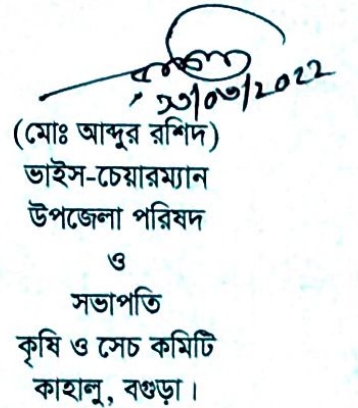 ২৩/০৩/২০২২
(মোঃ আব্দুর রশিদ)
ভাইস-চেয়ারম্যান
উপজেলা পরিষদ
ও
সভাপতি
কৃষি ও সেচ কমিটি
কাহালু, বগুড়া।